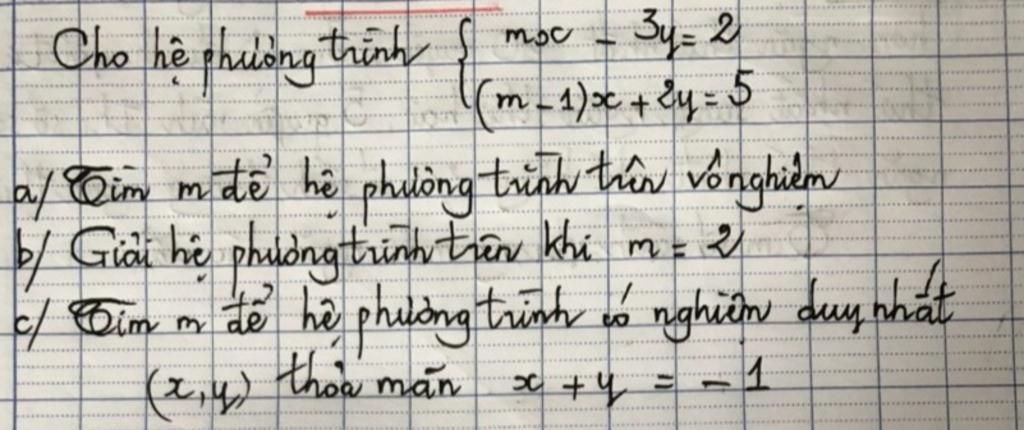 Cho hệ phương trình { mx - 3y = 2
(m - 1)x + 2y = 5
a/ Tìm m để hệ phương trình trên vô nghiệm
b/ Giải hệ phương trình trên khi m = 2
c/ Tìm m để hệ phương trình có nghiệm duy nhất
(x, y) thoả mãn x + y = - 1